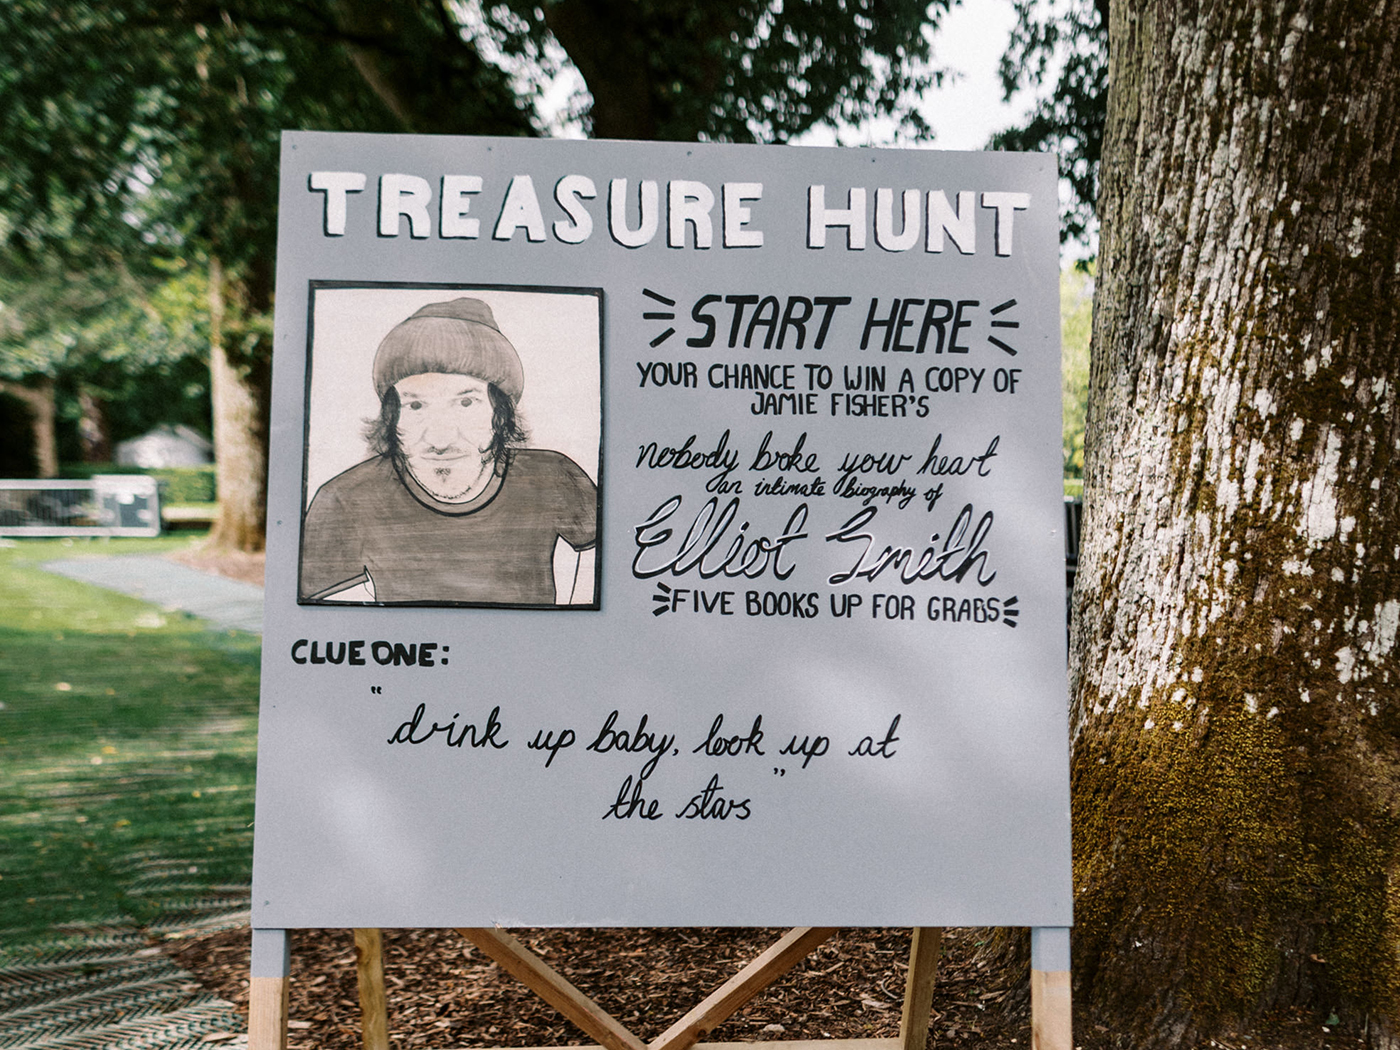 TREASURE HUNT
START HERE
YOUR CHANCE TO WIN A COPY OF
JAMIE FISHER'S
nobody broke your heart
an intimate biography of
Elliot Smith
FIVE BOOKS UP FOR GRABS
CLUE ONE:
"drink up baby, look up at
the stars"